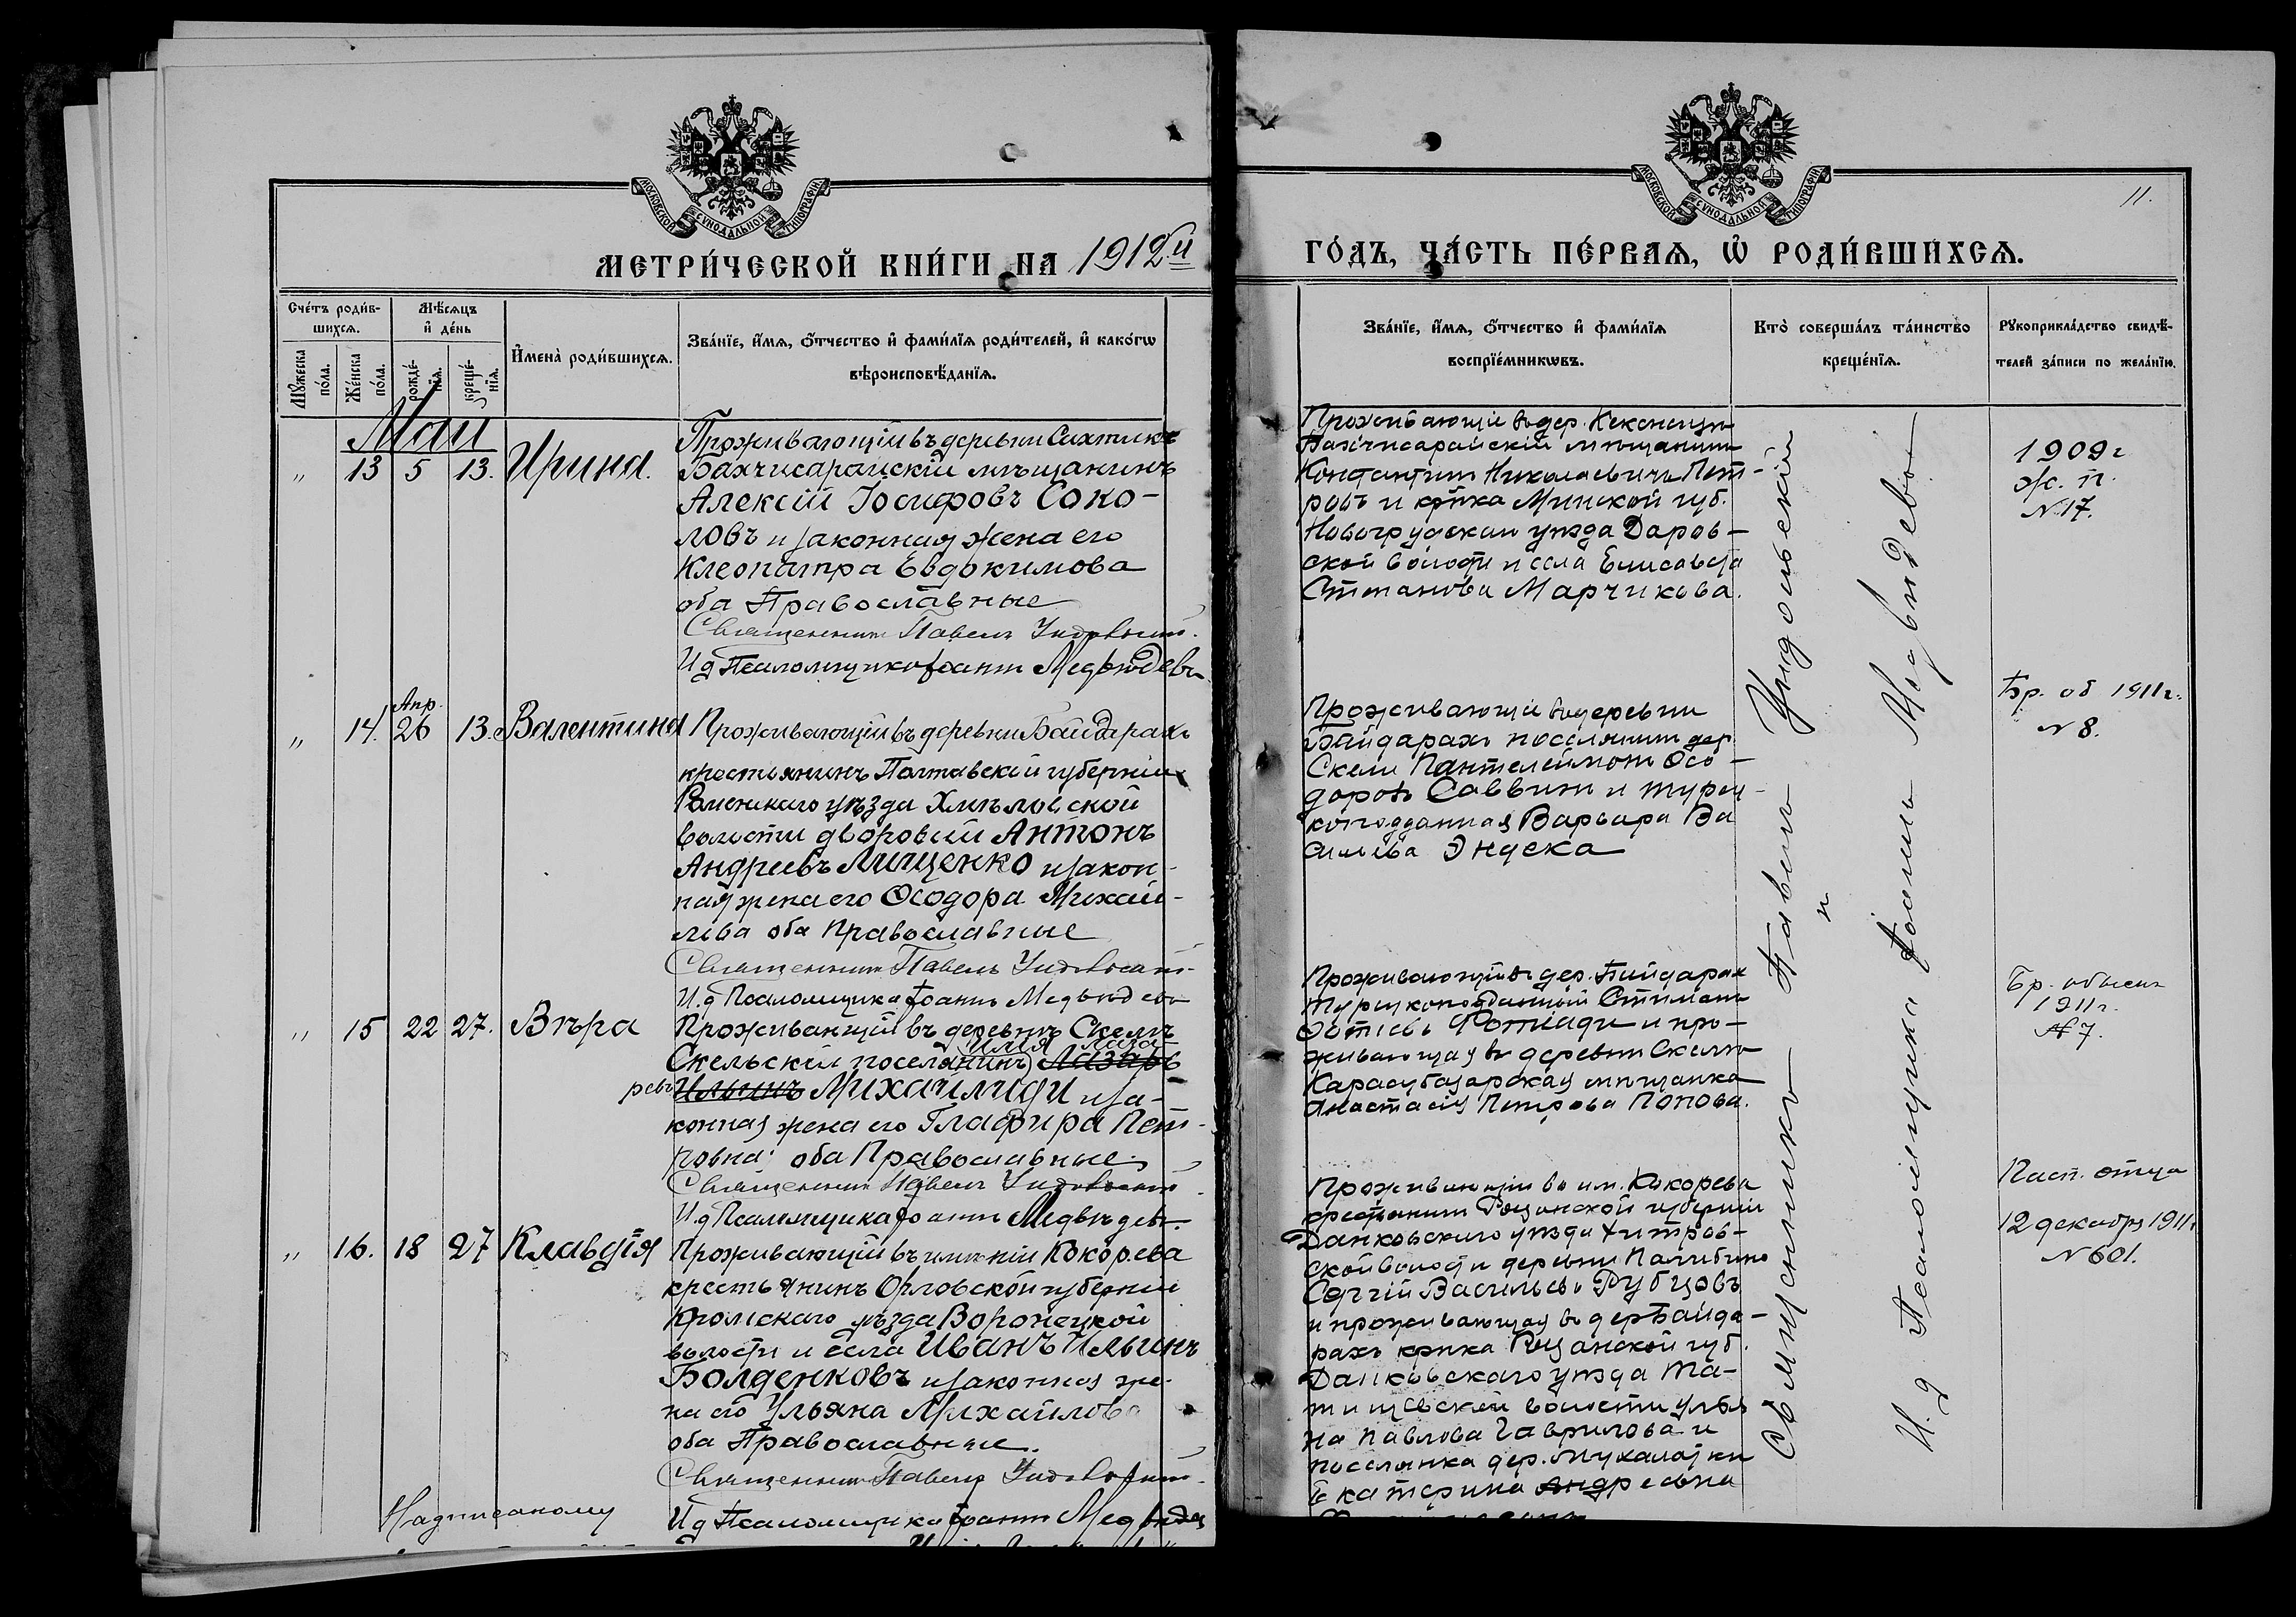 МОСКОВСКОЙ СѴНОДАЛЬНОЙ ТИПОГРАФІИ
МЕТРИ́ЧЕСКОЙ КНИ́ГИ НА 1912й
Сче́тъ роди́в-
шихся.
Мѣ́сяцъ
и҆ де́нь
Мꙋжеска по́ла.
Же́нска по́ла.
рожде́-нїя.
креще́-нїя.
И҆мена̀ роди́вшихся.
Зва́нїе, и҆́мя, ѻ҆́тчество и҆ фами́лїя роди́телей, и҆ како́гѡ
вѣроисповѣ́данїя.
Май
„ 13 5 13. Ирина.
Проживающій въ деревни Сахтикъ
Бахчисарайскій мѣщанинъ
Алексій Іосифовъ Соко-
ловъ и законная жена его
Клеопатра Евдокимова
оба Православные
Священникъ Павелъ Ундольскій.
И д Псаломщика Іоаннъ Медвѣдевъ
„ 14. Апр. 26 13. Валентина
Проживающій въ деревни Байдарахъ
крестьянинъ Полтавской губерніи
Роменскаго уѣзда Хмѣловской
волости дворовый Антонъ
Андреевъ Мищенко и закон-
ная жена его Ѳеодора Михай-
лова оба Православные
Священникъ Павелъ Ундольскій
И.д Псаломщика Іоаннъ Медвѣдевъ
„ 15 22 27. Вѣра
Проживающій въ деревнѣ Скеляхъ
Илія Лаза-
Скельскій поселянинъ Лазарь
ревъ Ильинъ Михаилиди и за-
конная жена его Глафира Пет-
ровна: оба Православные.
Священникъ Павелъ Ундольскій
И.д Псаломщика Іоаннъ Медвѣдевъ.
„ 16. 18 27 Клавдія
Проживающій въ имѣніи Кокорева
крестьянинъ Орловской губерніи
Кромскаго уѣзда Воронецкой
волости и села Иванъ Ильинъ
Болденковъ и законная же-
на его Ульяна Михайлова
оба Православные.
Священникъ Павелъ Ундольскій.
Надписаному
И д Псаломщика Іоаннъ Медвѣдев
МОСКОВСКОЙ СѴНОДАЛЬНОЙ ТИПОГРАФІИ
11.
ГО́ДЪ, ЧА́СТЬ ПЕ́РВАЯ, Ѡ҆ РОДИ́ВШИХСЯ.
Зва́нїе, и҆́мя, ѻ҆́тчество и҆ фами́лїя
воспрїе́мникѡвъ.
Кто̀ соверша́лъ та́инство
креще́нїя.
Рꙋкоприкла́дство свидѣ́-
телей за́писи по жела́нїю.
Проживающіе въ дер.
Бахчисарайскій мѣщанинъ
Константинъ Николаевичъ Пет-
ровъ и кр-нка Минской губ.
Новогрудскаго уѣзда Даров-
ской волости и села Елисавета
Степанова Марчикова.
1909 г
ж. п.
N 17.
Проживающіе въ деревни
Байдарахъ поселянинъ дер.
Скели Пантелеймонъ Ѳео-
доровъ Саввинъ и турец-
коподданная Варвара Ва
сильева Эндека
Бр. об 1911 г.
N 8.
Проживающій въ дер. Байдарах
Турецкоподданный Стилианъ
Фотіади и про-
живающая въ деревни Скеляхъ
Карасубазарская мѣщанка
Анастасія Петрова Попова.
Бр. обыск
1911 г.
N 7.
Проживающій въ им. Кокорева
крестьянинъ Рязанской губерніи
Данковскаго уѣзда Хитров-
ской волости деревни Палибино
Сергій Васильевъ Рубцовъ
и проживающая въ дер Байда-
рахъ кр-нка Рязанской губ.
Данковскаго уѣзда Та-
тищевской волости Улья
на Павлова Гаврилова и
поселянка дер. Мухалатки
Екатерина Андреевна
Пасп. отца
12 декабря 1911 г
N 601.
Священникъ Павелъ Ундольскій
и
И. д Псаломщика Іоаннъ Медвѣдевъ